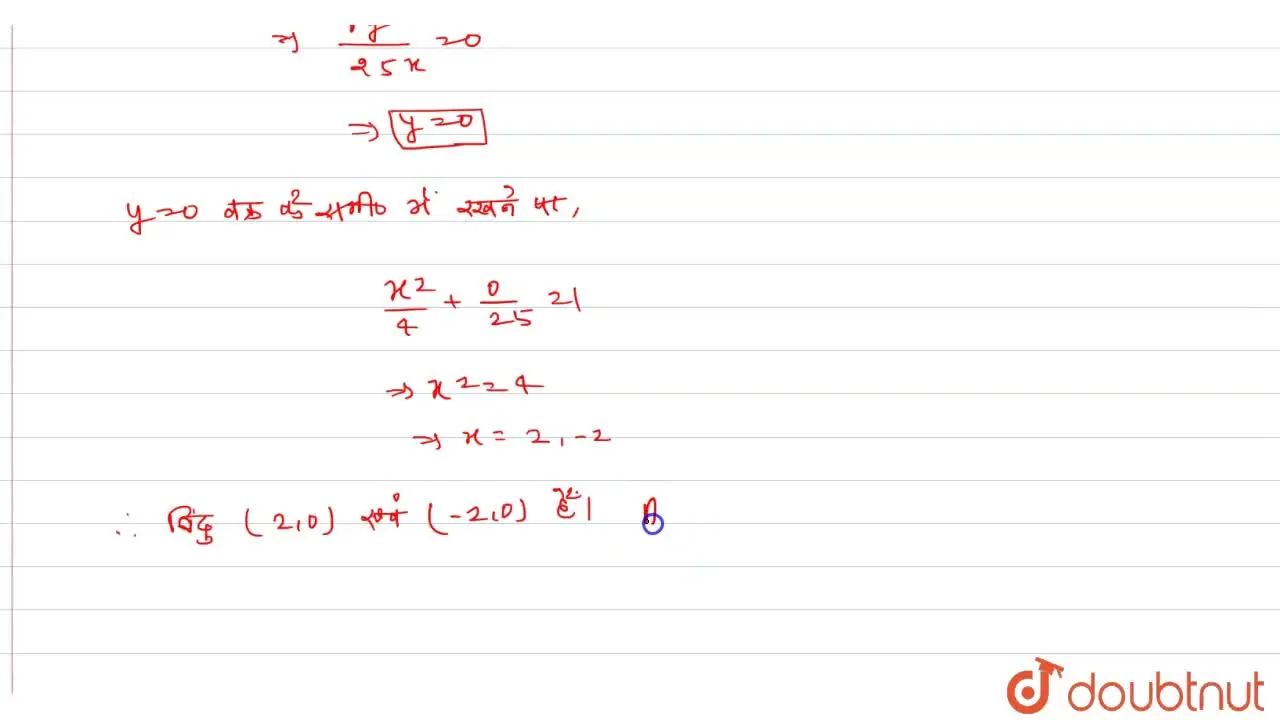 ⇒ y/25x = 0
⇒ y = 0
y = 0 वक्र के समी० में रखने पर,
x²/4 + 0/25 = 1
⇒ x² = 4
⇒ x = 2, -2
∴ बिंदु (2,0) एवं (-2,0) हैं।
doubtnut